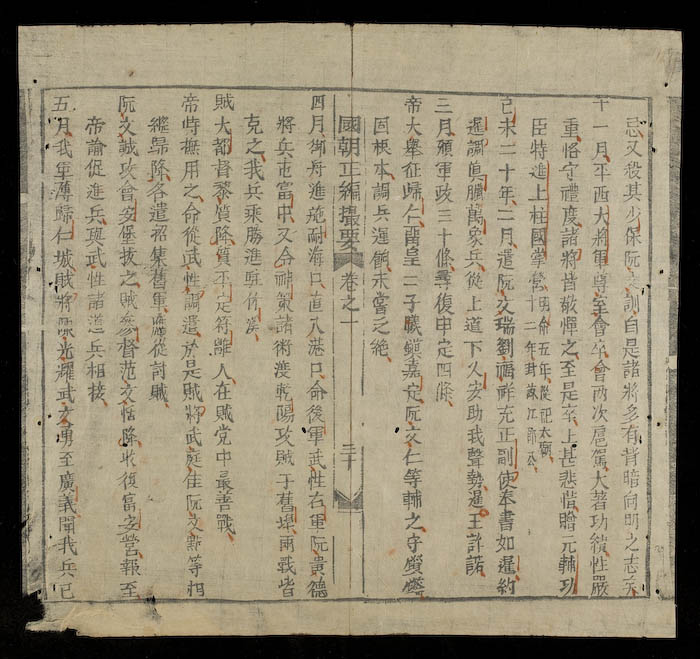 忌又殺其少保阮文訓自是諸將多有背暗向明之志矣
十一月平西大將軍尊室會卒會两次扈駕大著功績性嚴
重恪守禮度諸將皆敬憚之至是卒上甚悲惜贈元輔功
臣特進上柱國掌營明命五年從祀太廟十二年封
己未二十年二月遣阮文瑞劉福祥充正副使奉書如暹約
暹調真臘萬象兵從上道下乂安助我聲勢暹王許諾
三月頒軍政三十條尋復申定四條
帝大舉征歸仁留皇二子曦鎮嘉定阮文仁等輔之守
固根本調兵運餉未嘗乏絶
國朝正編撮要 卷之一 三十
四月御舟進施耐海口直入港口命後軍武性右軍阮黃德
將兵屯富中又命補策諸術渡乾陽攻賊于舊堤兩戰皆
克之我兵乘勝進駐侍溪
賊大都督黎質降質平定符離人在賊党中最善戰
帝特撫用之命從武性調遣於是賊將武庭佳阮文點等相
繼歸降各遣招集舊軍應從討賊
阮文誠攻會安堡拔之賊參督范文恬降收復富安營報至
帝諭促進兵與武性諸道兵相接
五月我軍薄歸仁城賊將陳光耀武文勇至廣義聞我兵已